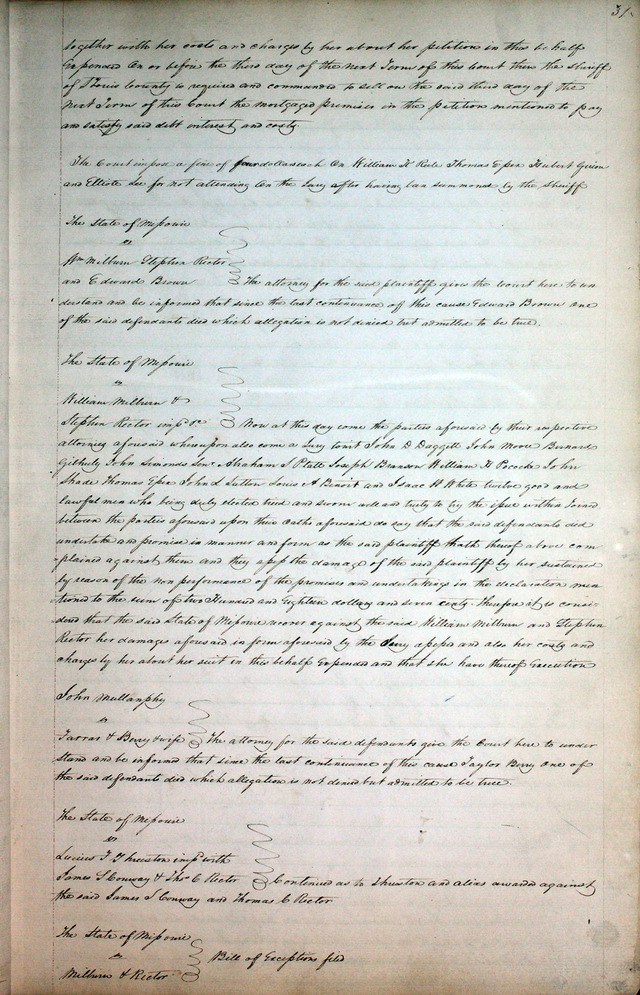 31
together with her costs and charges by her about her petition in this behalf
Expended On or before the third day of the Next Term of this Court then the sheriff
of St Louis County is required and commanded to sell on the said third day of the
Next Term of this Court the mortgaged premises in the petition mentioned to pay
and satisfy said debt interest and costs.
The Court impose a fine of four dollars each On William K Rule Thomas Essex Hubert Guion
and Elliott Lee for not attending On the Jury after having ben summoned by the sheriff
The State of Missouri
vs
Wm Milburn Stephen Rector
and Edward Brown The attorney for the said plaintiff gives the court here to un
derstand and be informed that since the last continuance off this cause Edward Brown one
of the said defendants died which allegation is not denied but admitted to be true.
The State of Missouri
vs
William Milburn &
Stephen Rector impd &c Now at this day come the parties aforesaid by their respective
attornies aforesaid whereupon also come a Jury towit John D Daggett John Moore Bernard
Gilhuly John Simonds Senr Abraham S Platt Joseph Branson William H Pocock John
Shade Thomas Essex John L Sutton Louis A Benoit and Isaac H White twelve good and
lawful men who being duly elected tried and sworn well and truly to try the issue within Joined
between the parties aforesaid upon their oaths aforesaid do say that the said defendants did
undertake and promise in manner and form as the said plaintiff hath thereof above com
plained against them and they assess the damage of the said plaintiff by her sustained
by reason of the non performance of the promises and undertakings in the declaration men
tioned to the sum of two Hundred and Eighteen dollars and seven cents. Therefore it is consi
dered that the said State of Missouri recover against the said William Milburn and Stephen
Rector her damages aforesaid in form aforesaid by the Jury assess and also her costs and
charges by her about her suit in this behalf Expended and that she have thereof Execution
John Mullanphy
vs
Farrar & Berry & wife The attorney for the said defendants give the Court here to under
stand and be informed that since the last continuance of this cause Taylor Berry one of
the said defendants died which allegation is not denied but admitted to be true.
The State of Missouri
vs
Lucius F Thruston impd with
James S Conway & Thos C Rector Continued as to Thruston and alias awarded against
the said James S Conway and Thomas C Rector
The State of Missouri
vs Bill of Exceptions filed
Milburn & Rector